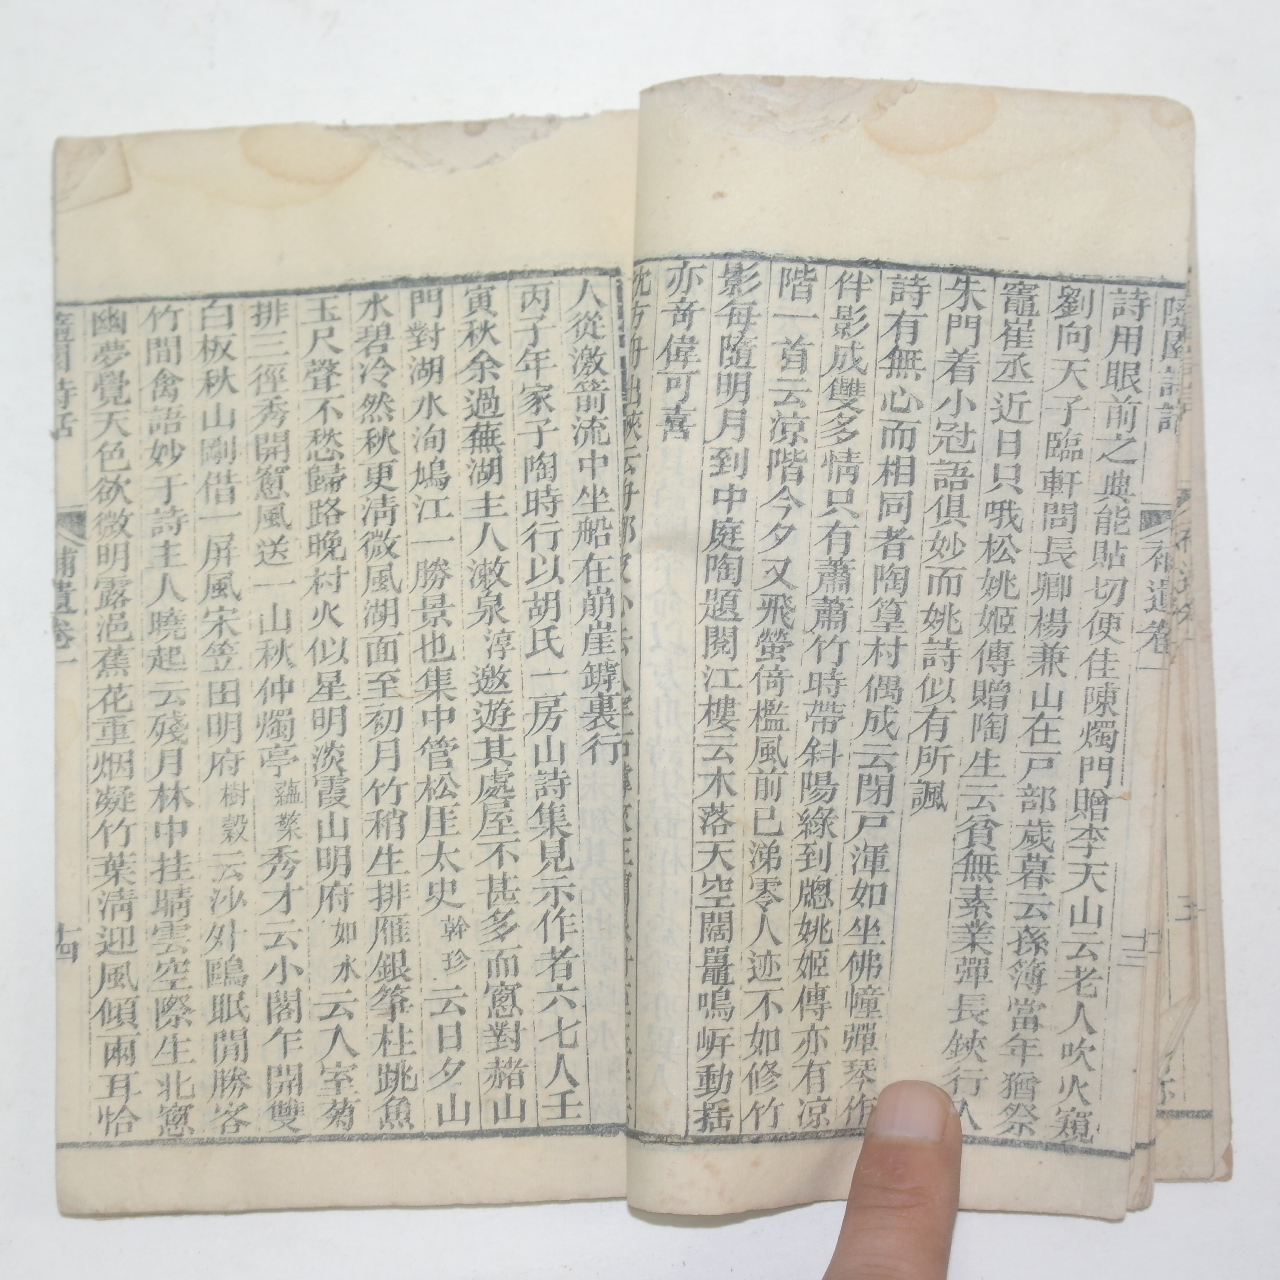 隨園詩話
補遺卷一
十三
詩用眼前之典能貼切便佳陳燭門贈李天山云老人吹火窺
劉向天子臨軒問長卿楊兼山在戸部歲暮云孫簿當年猶祭
竈崔丞近日只哦松姚姬傳贈陶生云貧無素業彈長鋏行入
朱門着小冠語俱妙而姚詩似有所諷
詩有無心而相同者陶篁村偶成云閉戸渾如坐佛幢彈琴作
伴影成雙多情只有蕭蕭竹時帶斜陽綠到牕姚姬傳亦有凉
階一首云凉階今夕又飛螢倚檻風前已涕零人迹不如修竹
影每隨明月到中庭陶題閱江樓云木落天空闊鼉鳴岍動揺
亦奇偉可喜
沈方舟出峽云舟郞
人從激箭流中坐船在崩崖鏬裏行
丙子年家子陶時行以胡氏一房山詩集見示作者六七人壬
寅秋余過蕪湖主人漱泉淳邀遊其處屋不甚多而窻對赭山
門對湖水洵鳩江一勝景也集中管松厓太史幹珍云日夕山
水碧冷然秋更清微風湖面至初月竹稍生排雁銀筝柱跳魚
玉尺聲不愁歸路晚村火似星明淡霞山明府如水云入室菊
排三徑秀開窻風送一山秋仲燭亭蘊檠秀才云小閣乍開雙
白板秋山剛借一屏風宋笠田明府樹穀云沙外鷗眠閒勝客
竹間禽語妙于詩主人曉起云殘月林中挂晴雲空際生北窻
幽夢覺天色欲微明露浥蕉花重烟凝竹葉清迎風傾兩耳恰
隨園詩話
補遺卷一
十四